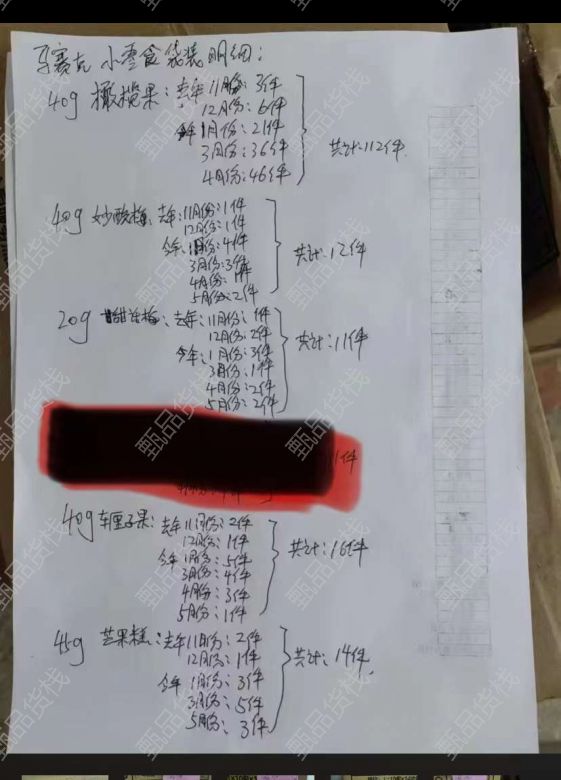 马赛克 小零食袋装明细:
40g 橄榄果: 去年 11月份: 3件
12月份: 6件
今年 1月份: 21件
3月份: 36件
4月份: 46件
共计:112件.
40g 妙酸梅: 去年:11月份:1件
12月份:1件
今年:1月份:4件
3月份:3件
4月份:1件
5月份:2件
共计:12件
20g 甜话梅: 去年:11月份:1件
12月份:2件
今年:1月份:3件
3月份:1件
4月份:2件
5月份:2件
共计:11件
11件
40g 车厘子果: 去年 11月份:2件
12月份:1件
今年 1月份:5件
3月份:4件
4月份:3件
5月份:1件
共计:16件
45g 芒果糕: 去年 11月份:2件
12月份:1件
今年 1月份:3件
3月份:5件
5月份:3件
共计:14件.
甄品货栈